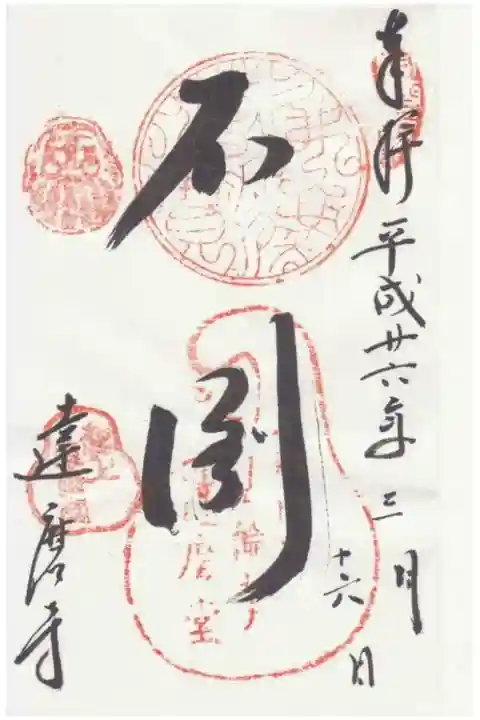 奉拝 平成廿六年 三月 十六日
不倒
達磨寺
輪寺
達磨堂